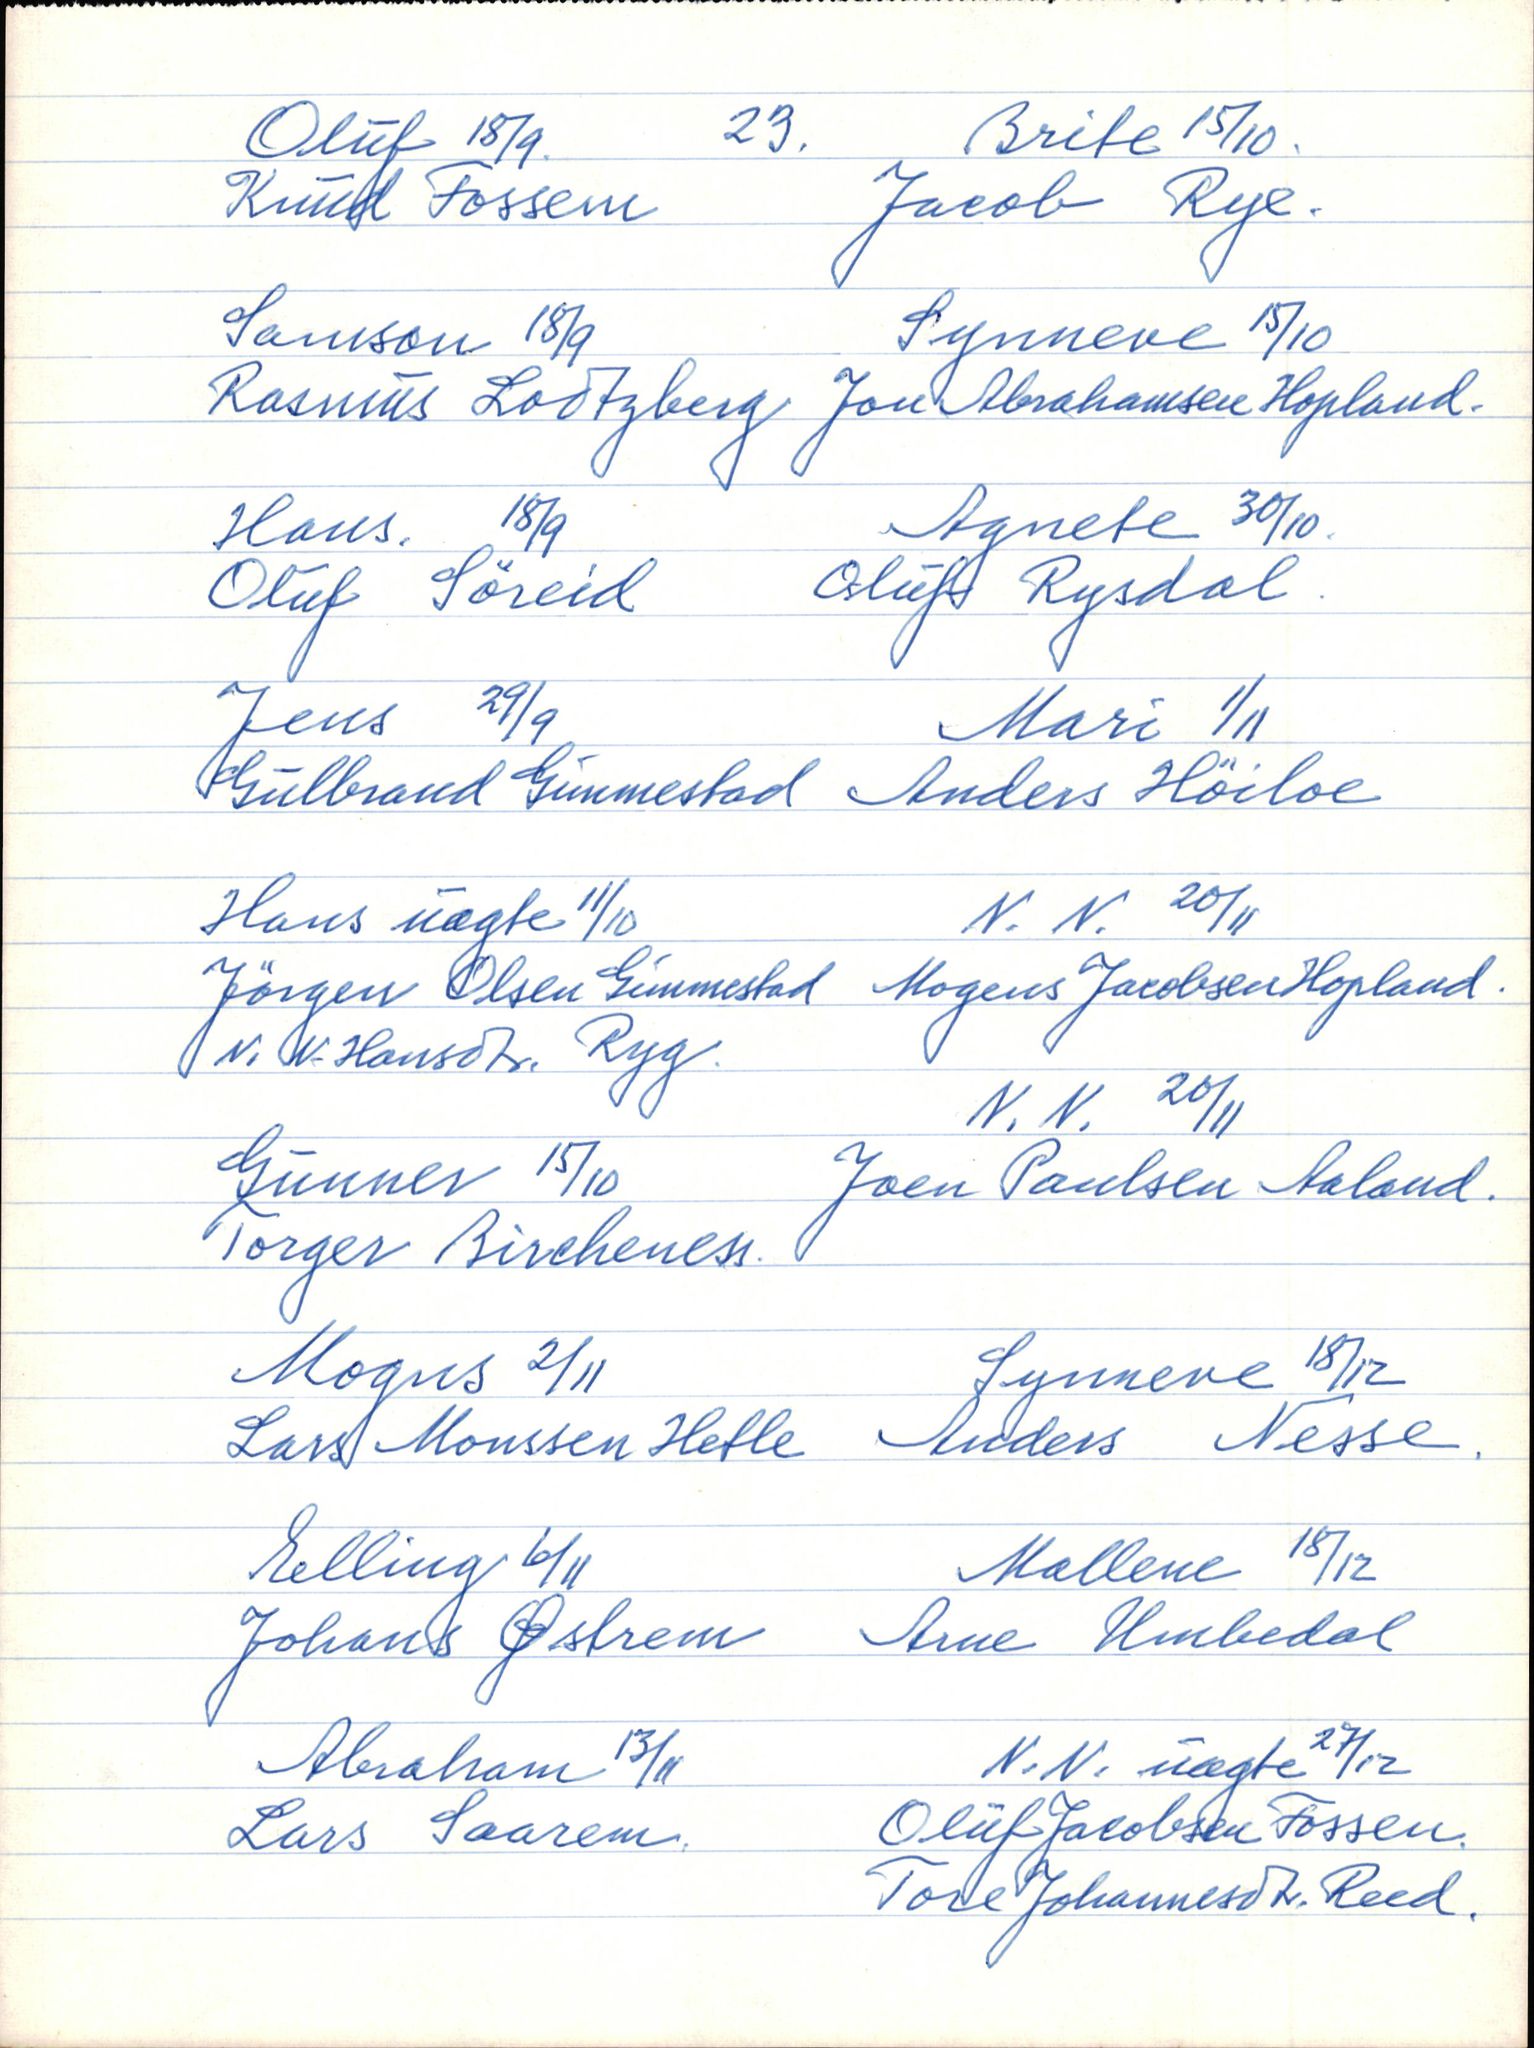 23.
Oluf 18/9.
Knud Fossem
Samson 18/9
Rasmus Lodtzberg
Hans. 18/9
Oluf Söreid
Jens 29/9
Gulbrand Gimmestad
Hans uægte 11/10
Jörgen Olsen Gimmestad
N. N. Hansdtr. Ryg.
Gunner 15/10
Torger Bircheness.
Mogns 2/11
Lars Monssen Hetle
Elling 6/11
Johans Østrem
Abraham 13/11
Lars Saarem.
Brite 15/10.
Jacob Rye.
Synneve 15/10
Jon Abrahamsen Hopland.
Agnete 30/10.
Olufs Rysdal.
Mari 1/11
Anders Höiloe
N. N. 20/11
Mogens Jacobsen Hopland.
N. N. 20/11
Joen Paulsen Aaland.
Synneve 18/12
Anders Nesse.
Mallene 18/12
Arne Umbedal
N.N. uægte 27/12
Oluf Jacobsen Fossen.
Tore Johannesdtr. Reed.